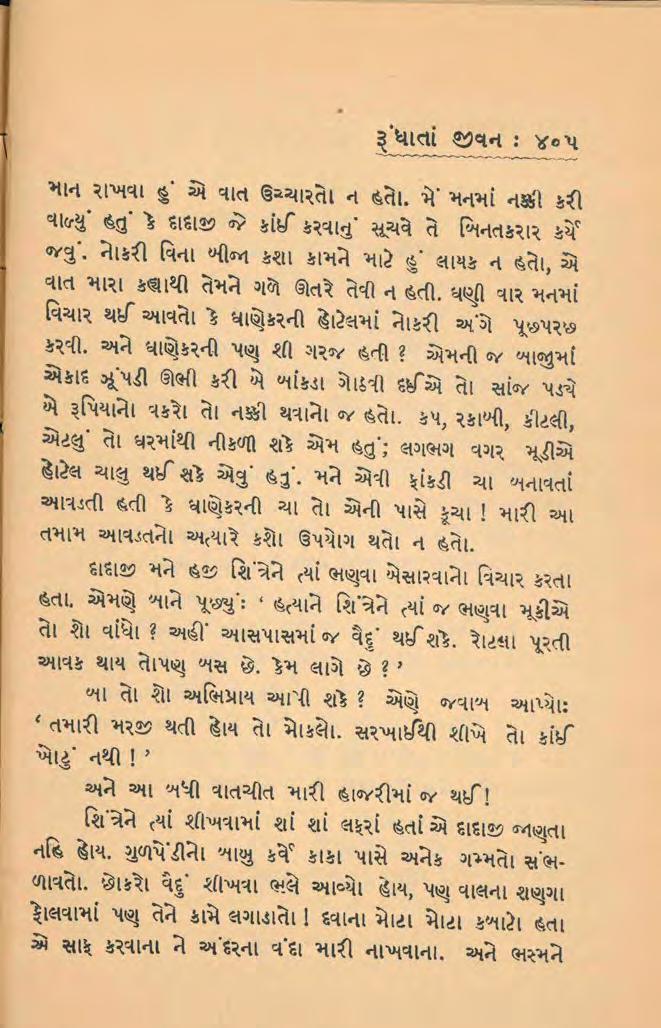 રૂંધાતાં જીવન : ૪૦૫
માન રાખવા હું એ વાત ઉચ્ચારતો ન હતો. મેં મનમાં નક્કી કરી
વાળ્યું હતું કે દાદાજી જે કાંઈ કરવાનું સૂચવે તે બિનતકરાર કર્યે
જવું. નોકરી વિના બીજા કશા કામને માટે હું લાયક ન હતો, એ
વાત મારા કહ્યાથી તેમને ગળે ઊતરે તેવી ન હતી. ઘણી વાર મનમાં
વિચાર થઈ આવતો કે ધાણેકરની હોટેલમાં નોકરી અંગે પૂછપરછ
કરવી. અને ધાણેકરની પણ શી ગરજ હતી ? એમની જ બાજુમાં
એકાદ ઝૂંપડી ઊભી કરી બે બાંકડા ગોઠવી દઈએ તો સાંજ પડ્યે
બે રૂપિયાનો વકરો તો નક્કી થવાનો જ હતો. કપ, રકાબી, કીટલી,
એટલું તો ઘરમાંથી નીકળી શકે એમ હતું; લગભગ વગર મૂડીએ
હોટેલ ચાલુ થઈ શકે એવું હતું. મને એવી ફાંકડી ચા બનાવતાં
આવડતી હતી કે ધાણેકરની ચા તો એની પાસે કૂચા ! મારી આ
તમામ આવડતનો અત્યારે કશો ઉપયોગ થતો ન હતો.
દાદાજી મને હજી શિંત્રેને ત્યાં ભણવા બેસારવાનો વિચાર કરતા
હતા. એમણે બાને પૂછ્યું: ‘ હત્યાને શિંત્રેને ત્યાં જ ભણવા મૂકીએ
તો શો વાંધો ? અહીં આસપાસમાં જ વૈદું થઈ શકે. રોટલા પૂરતી
આવક થાય તોપણ બસ છે. કેમ લાગે છે ? ’
બા તો શો અભિપ્રાય આપી શકે ? એણે જવાબ આપ્યો:
‘ તમારી મરજી થતી હોય તો મોકલો. સરખાઈથી શીખે તો કાંઈ
ખોટું નથી ! ’
અને આ બધી વાતચીત મારી હાજરીમાં જ થઈ !
શિંત્રેને ત્યાં શીખવામાં શાં શાં લફરાં હતાં એ દાદાજી જાણતા
નહિ હોય. ગુળપેંડીનો બાબુ કર્વે કાકા પાસે અનેક ગમ્મતો સંભ-
ળાવતો. છોકરો વૈદું શીખવા ભલે આવ્યો હોય, પણ વાલના શણગા
ફોલવામાં પણ તેને કામે લગાડાતો ! દવાના મોટા મોટા કબાટો હતા
એ સાફ કરવાના ને અંદરના વંદા મારી નાખવાના. અને ભસ્મને